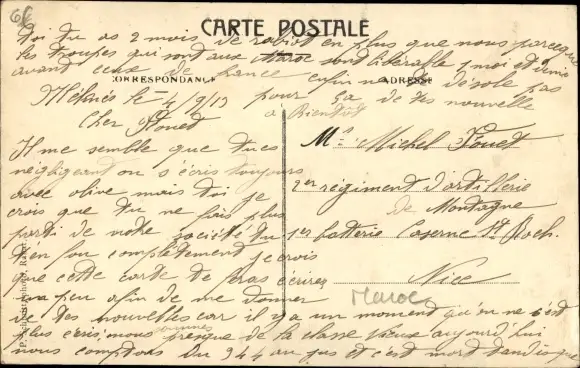 CARTE POSTALE
CORRESPONDANCE
ADRESSE
Méknès le 4/9/13
Cher Fouet
Il me semble que tu es
négligeant on s'écris toujours
avec olive mais toi je
crois que tu ne fais plus
parti de notre société tu
t'en fou complètement je crois
que cette carte te feras écrire
un peu afin de me donner
de tes nouvelles car il y a un moment qu'on ne s'est
plus écris, nous sommes presque de la classe vieux aujourd'hui
nous comptons du 344 au jus et c'est mort tandis que
toi tu as 2 mois de rabiot en plus que nous parceque
les troupes qui sont aux Maroc sont libérable 2 mois
avant ceux de France enfin ne te désole pas
pour ça de tes nouvelle
a Bientôt
Mr Michel Fouet
2er régiment d'artillerie
de Montagne
1er batterie Caserne St Roch.
Nice
Maroc